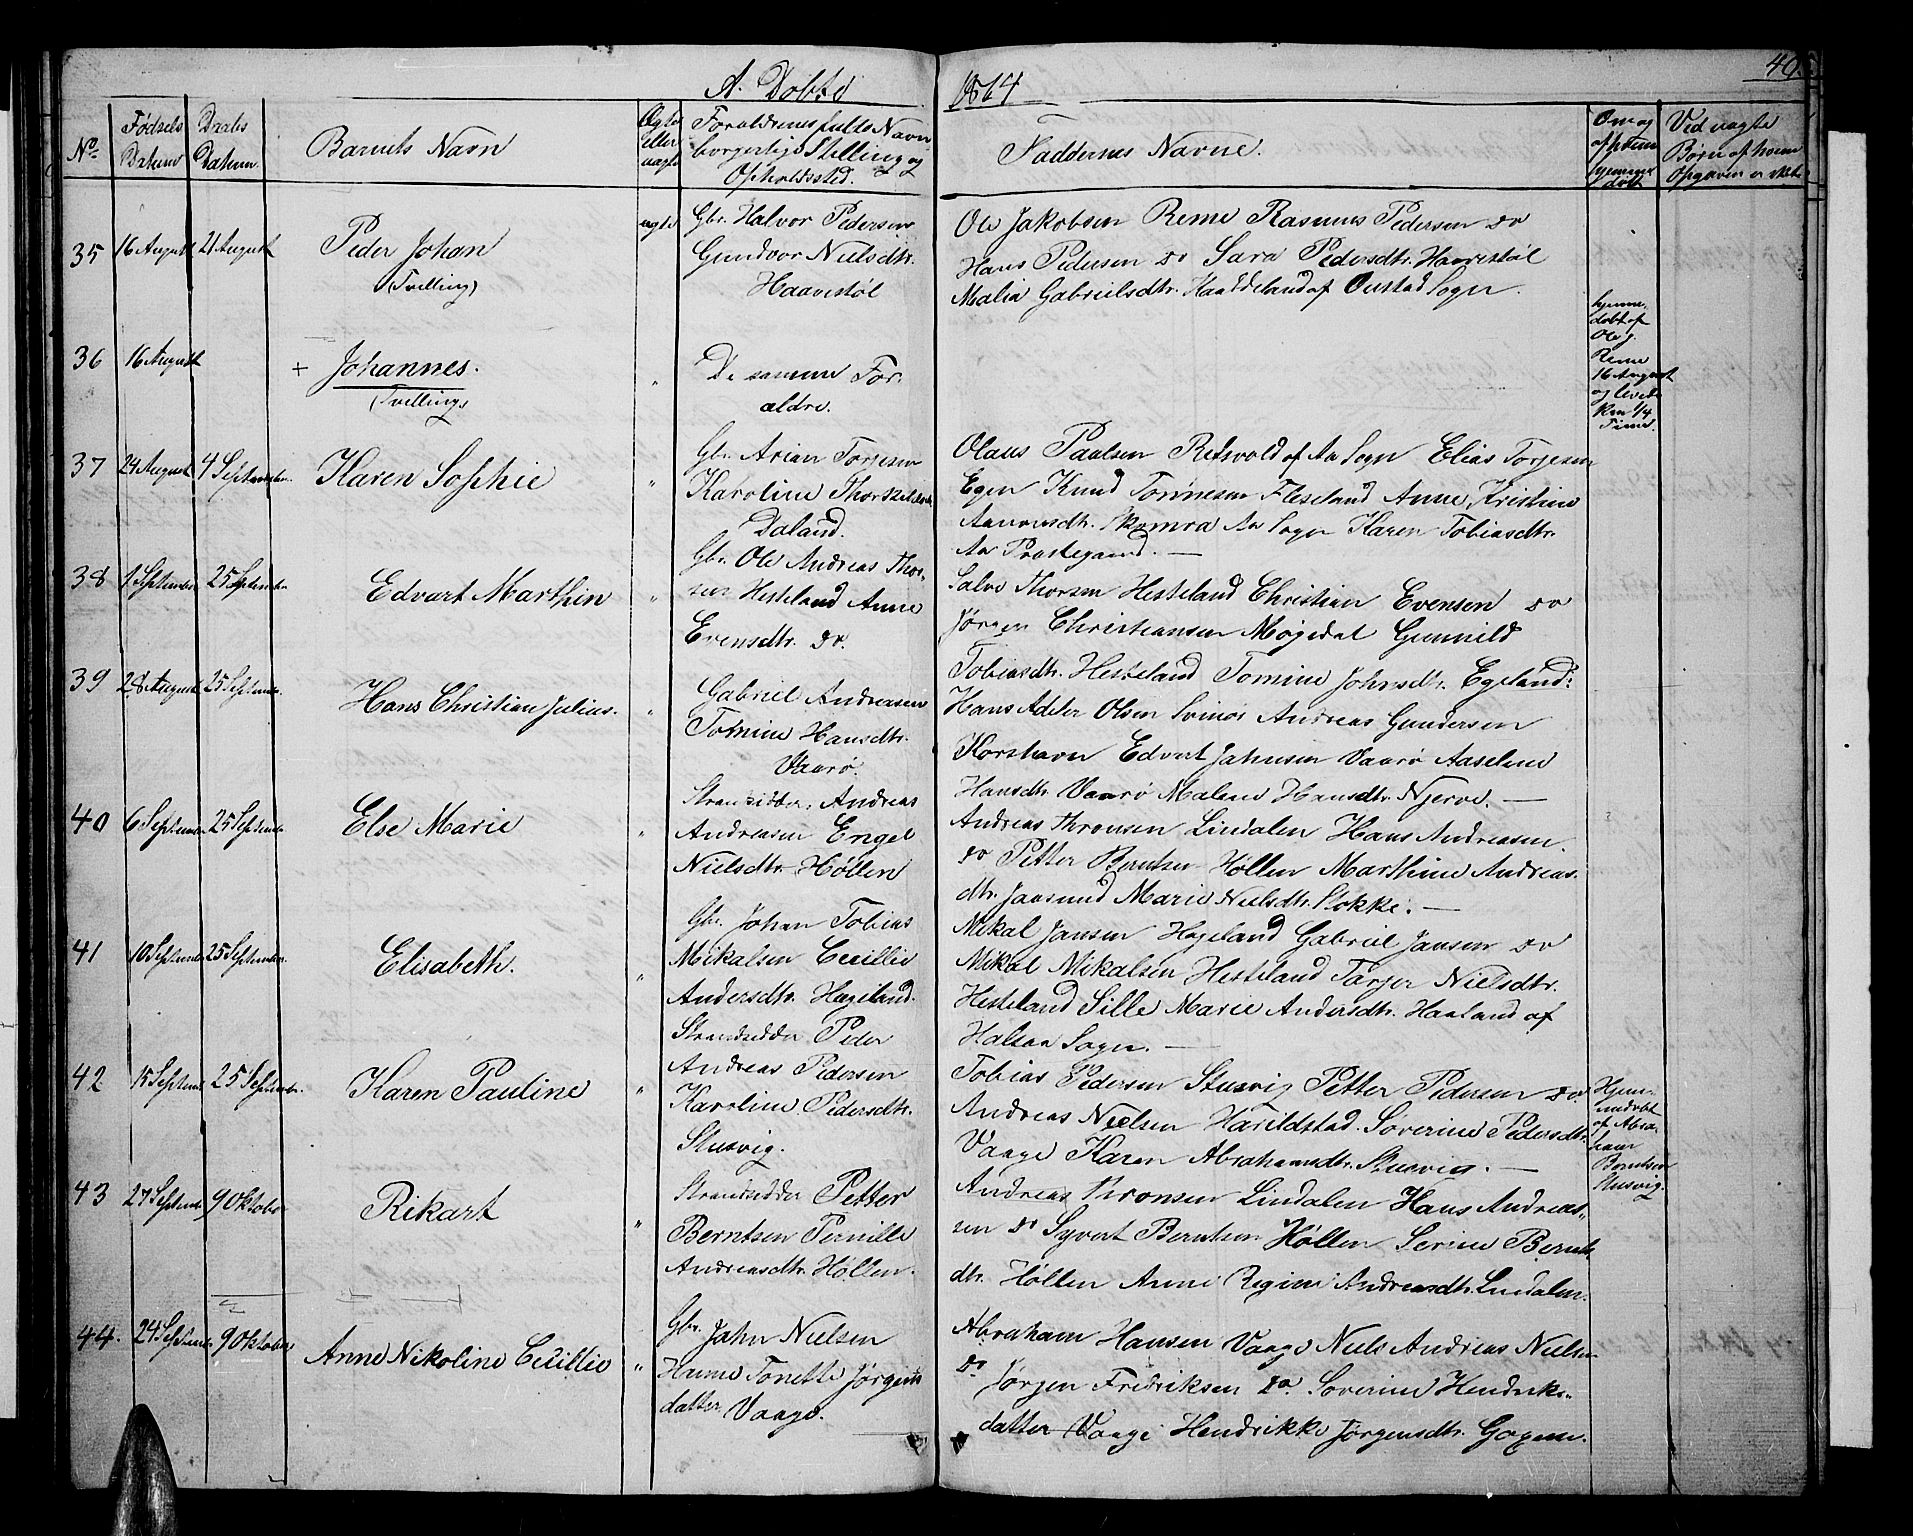 A. Døbte
1864
49.
No.
Fødsels Datum
Daabs Datum
Barnets Navn
Ægte eller uægte
Forældrenes fulde Navn
borgerlige Stilling og
Opholdssted.
Faddernes Navne.
Om og af hvem hjemmedøbt
Ved uægte
Børn af hvem
Opgaven er sket
35 16 August 21 August Peder Johan
(Tvilling)
ægte
Gbr. Halvor Pedersen
Gundvor Nielsdtr.
Haavestøl
Ole Jakobsen Reme Rasmus Pedersen do
Hans Pedersen do Sara Pedersdtr. Haavestøl
Malia Gabrielsdtr. Haaddeland af Oustad Sogn.
36 16 August + Johannes.
(Tvilling)
"
De samme For-
ældre.
hjemme-
døbt af
Ole J.
Reme
16 August
og levede
kun 1/4
Time.
37 24 August 4 September Karen Sophie
"
Gbr. Arian Torjesen
Karoline Thorkelsdtr.
Daland.
Olaus Paulsen Retsvold af Aa Sogn Elias Torjesen
Egen Knud Tønnesen Fleseland Anne Kristine
Aanensdtr. Skomra Aa Sogn Karen Tobiasdtr.
Aa Prestegaard. —
38 1 September 25 September Edvart Marthin
"
Gbr. Ole Andreas Thor-
sen Hesteland Anne
Evensdtr. do.
Salve Thorsen Hesteland Christian Evensen do
Jørgen Christiansen Møgedal Gunnild
Tobiasdtr. Hesteland Tomine Johnsdtr. Egeland.
39 28 August 25 September Hans Christian Julius.
"
Gabriel Andreasen
Tomine Hansdtr.
Vaarø.
Hans Adeler Olsen Svinør Andreas Gundersen
Korshavn Edvart Jahnsen Vaarø Aaselene
Hansdtr. Vaarø Malene Hansdtr. Njerve. —
40 6 September 25 September Else Marie
"
Strandsidder Andreas
Andreasen Engel
Nielsdtr. Høllen
Andreas Thronsen Lindalen Hans Andreasen
do Petter Berntsen Høllen Marthine Andreas-
dtr. Jaasund Marie Nielsdtr. Stokke. —
41 10 September 25 September Elisabeth.
"
Gbr. Johan Tobias
Mikalsen Cecillie
Andersdtr. Hageland.
Mikal Jansen Hageland Gabriel Jansen do
Mikal Mikalsen Hesteland Tarjer Nielsdtr.
Hesteland Sille Marie Andersdtr. Haaland af
Halsaa Sogn. —
42 15 September 25 September Karen Pauline
"
Strandsidder Peder
Andreas Pedersen
Karoline Pedersdtr.
Stusvig.
Tobias Pedersen Stusvig Petter Pedersen do
Andreas Nielsen Harildstad Søverine Pedersdtr.
Vaage Karen Abrahamsdtr. Stusvig. —
Hjem-
medøbt
af Abra-
ham
Berntsen
Stusvig.
43 27 September 9 Oktober Rikart
"
Strandsidder Petter
Berntsen Pernille
Andreasdtr. Høllen.
Andreas Thronsen Lindalen Hans Andreas-
sen do Syvert Berntsen Høllen Serine Bernts-
dtr. Høllen Anne Regine Andreasdtr. Lindalen.
44. 24 September 9 Oktober Anne Nikoline Cecillie
"
Gbr. Jahn Nielsen
Hanne Tonette Jørgens
datter Vaage.
Abraham Hansen Vaage Niels Andreas Nielsen
do Jørgen Fredriksen do. Soverine Hendriks-
datter Vaage Hendrikke Jørgensdtr. Goxem.